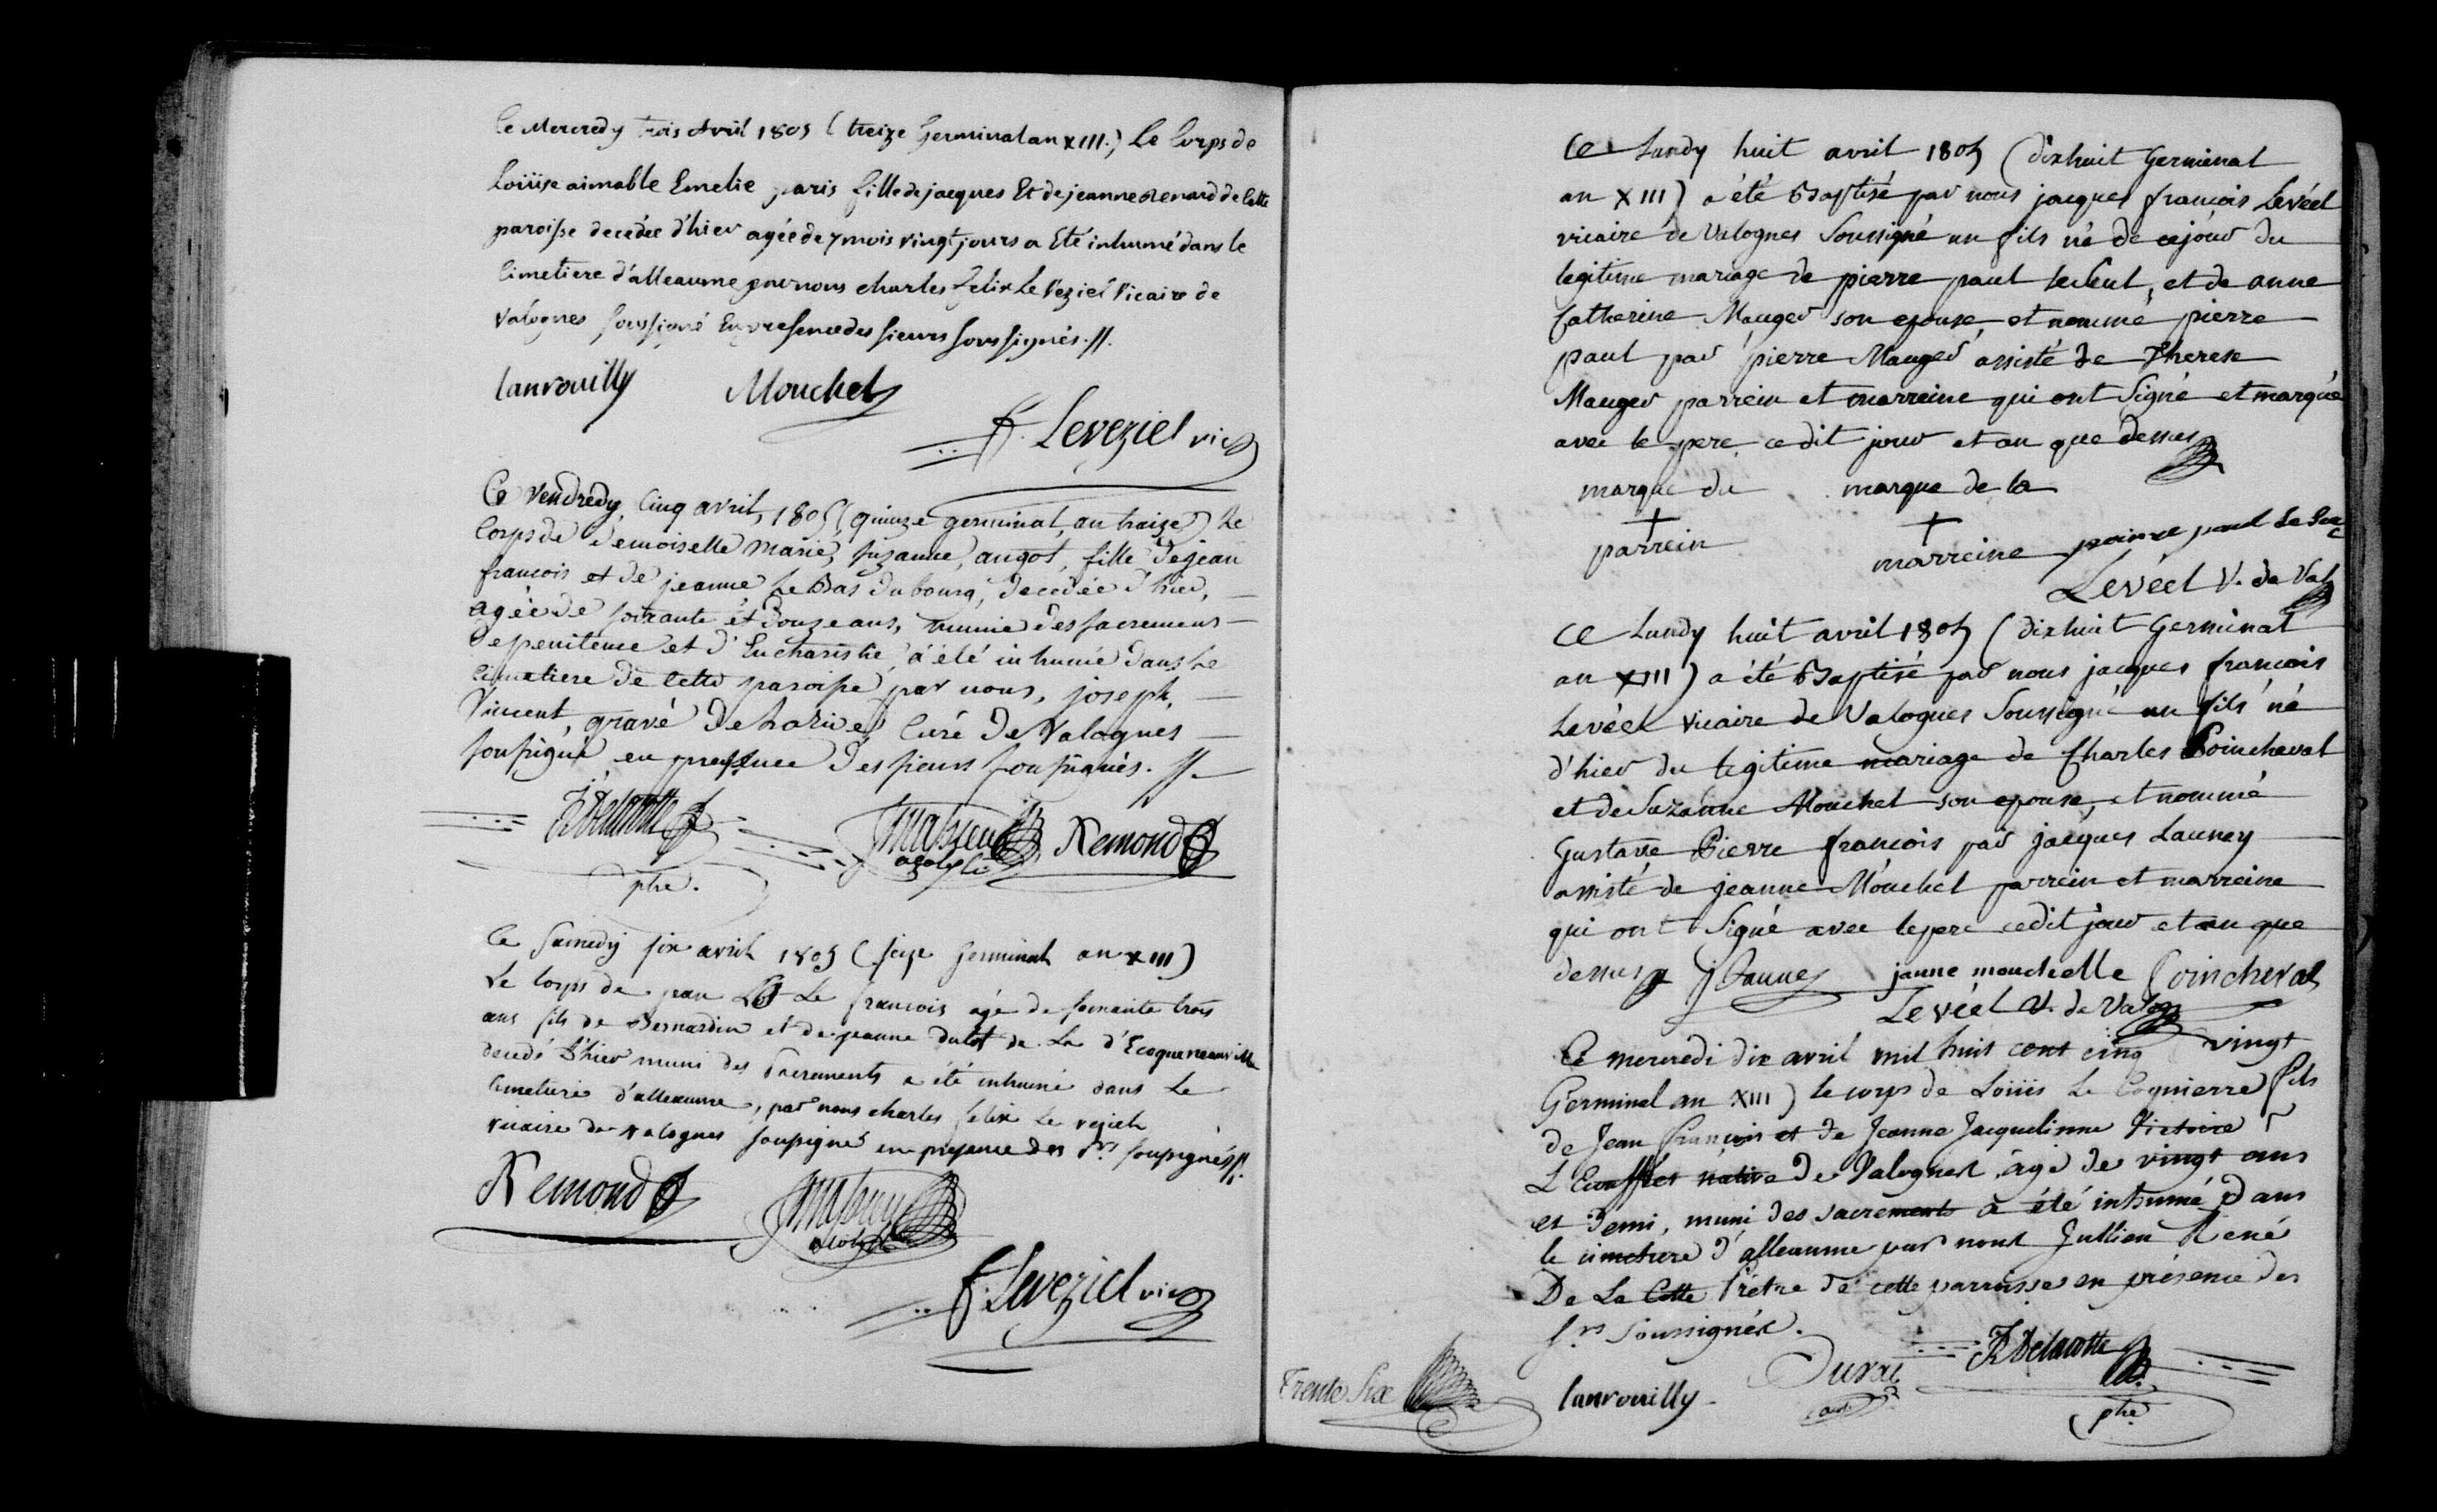 Ce Mercredy trois Avril 1805 (treize Germinal an XIII.) Le Corps de
Loüise aimable Emelie paris fille de jacques Et de jeanne Renard de Cette
paroisse decedée d'hier agée de 7 mois vingt jours a Eté inhumé dans le
Cimetiere d'alleaume par nous charles Felix Le Veziel Vicaire de
Valognes soussigné En presence des sieurs soussignés.//.
lanrouilly Mouchel
F. Leveziel vic
Ce Vendredy, Cinq avril, 1805 (quinze germinal, an traize) Le
Corps de Demoiselle Marie, Suzanne, angot, fille de jean
francois et de jeanne Le Bas dubourg, decedée d'hier,
agée de soixante et douze ans, munie des sacremens
de penitence et d'Eucharistie, a été inhumée dans Le
Cimetiere de Cette paroisse par nous, joseph,
Vincent, gravé De Curé De Valognes
soussigné en presence des sieurs soussignés. //.
R Delacotte Remond
ptre.
Ce Samedy six avril 1805 (seize Germinal an XIII)
Le Corps de jean Le francois agé de soixante trois
ans fils de Bernardin et de jeanne de La d'
decedé d'hier muni des Sacrements a été inhumé dans Le
Cimetiere d'alleaume, par nous charles felix Le veziel
vicaire de valognes soussigné en presence des Srs soussignés//.
Remond
F. Leveziel vic
Ce Lundy huit avril 1805 (dixhuit Germinal
an XIII) a été Baptisé par nous jacques francois Levéel
vicaire de Valognes Soussigné un fils né de cejour du
legitime mariage de pierre paul et de anne
Catherine Mauger son epouse, et nommé pierre
paul par pierre Mauger assisté de Therese
Mauger parrein et marreine qui ont Signé et marqué
avec le pere ce dit jour et an que dessus
marque du marque de la
parrein marreine
Levéel V. de Val
Ce Lundy huit avril 1805 (dixhuit Germinal
an XIII) a été Baptisé par nous jacques francois
Levéel vicaire de Valognes Soussigné un fils né
d'hier du legitime mariage de Charles Poincheval
et de Suzanne Mouchel son epouse, et nommé
Gustave Pierre francois par jacques Launey
assisté de jeanne Mouchel parrein et marreine
qui ont Signé avec le pere cedit jour et an que
dessus jeanne mouchelle Poincheval
Levéel V. de Valog
Ce mercredi dix avril mil huit cent cinq (vingt
Germinal an XIII) le corps de Loüis Le Cognierre fils
de Jean François et de Jeanne Jacquelinne Victoire
L native de Valognes agé de vingt ans
et demi, muni des sacrements a été inhumé dans
le cimetiere d'alleaume par nous Jullien René
De La Cotte Prêtre de cette parroisse en présence des
Srs Soussignés.
Trente Six lanrouilly Duval R Delacotte
ptre